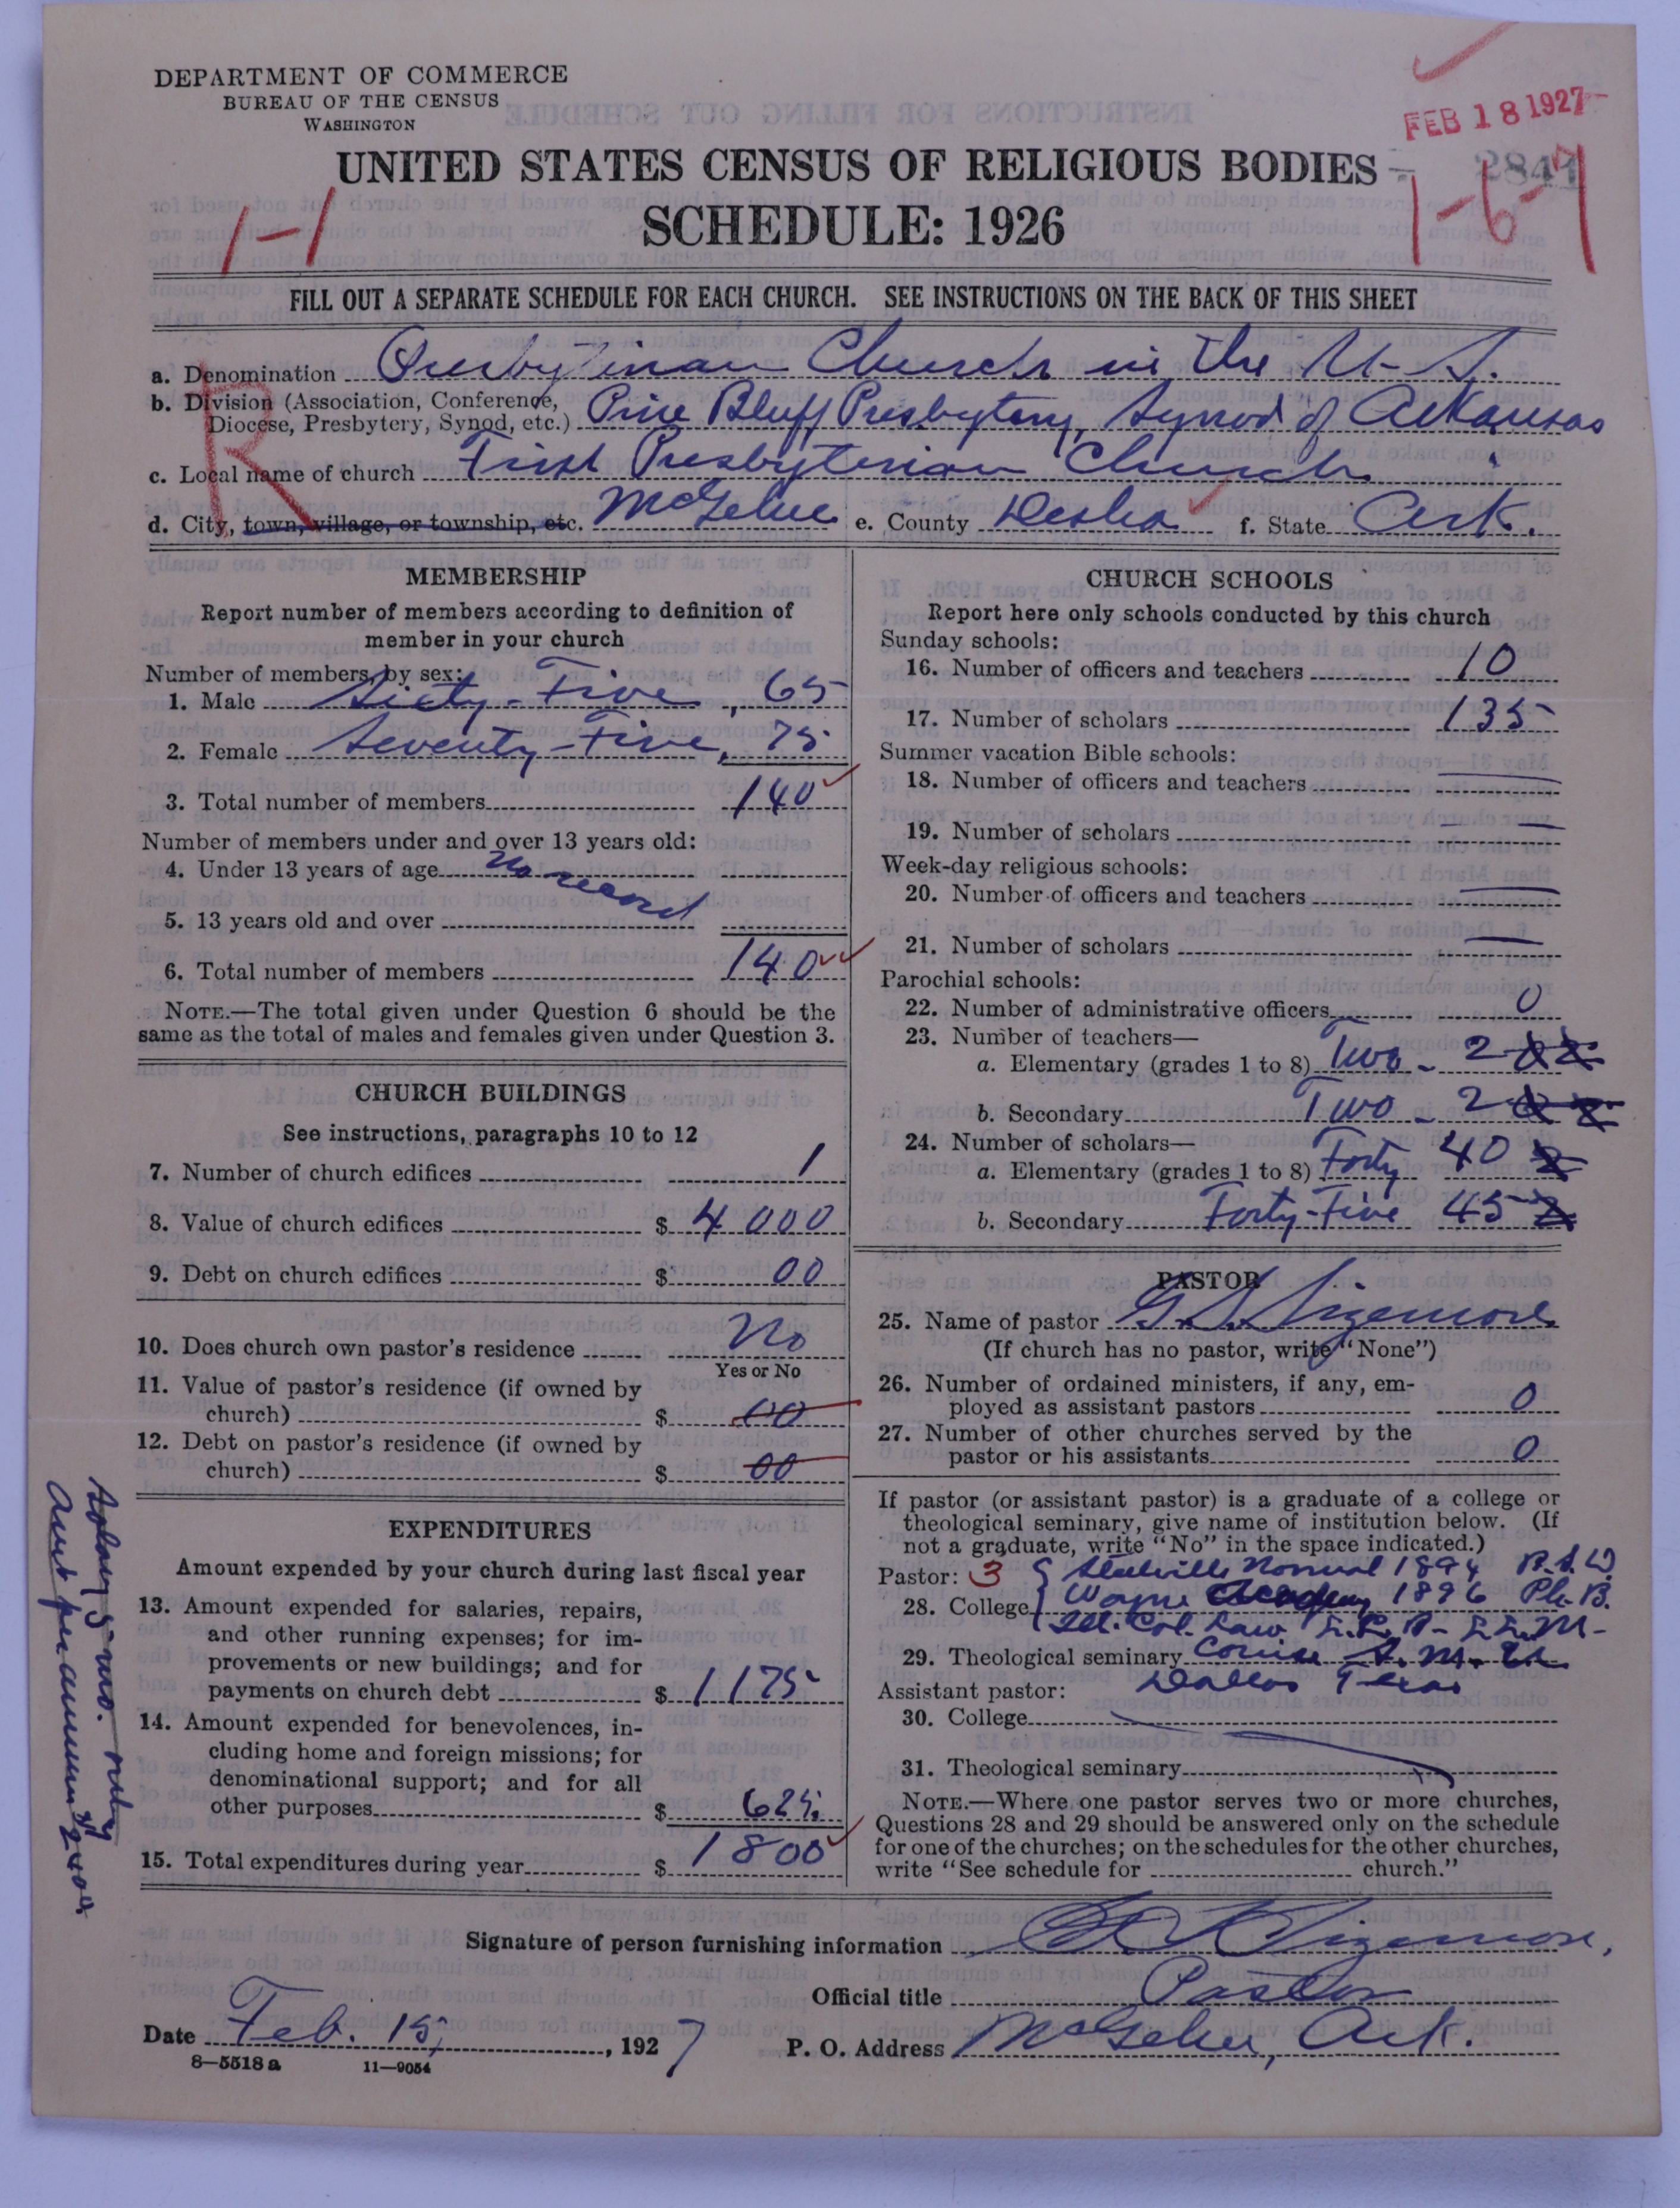 DEPARTMENT OF COMMERCE
BUREAU OF THE CENSUS
WASHINGTON
FEB 18 1927
UNITED STATES CENSUS OF RELIGIOUS BODIES
2841
SCHEDULE: 1926
1-1
1-6-7
FILL OUT A SEPARATE SCHEDULE FOR EACH CHURCH. SEE INSTRUCTIONS ON THE BACK OF THIS SHEET
R
a. Denomination Presbyterian Church in the U-S.
b. Division (Association, Conference, Diocese, Presbytery, Synod, etc.) Pine Bluff Presbytery, Synod of Arkansas
c. Local name of church First Presbyterian Church
d. City, town, village, or township, etc. McGehee e. County Desha f. State Ark.
MEMBERSHIP
Report number of members according to definition of
member in your church
Number of members, by sex:
1. Male Sixty-Five, 65
2. Female Seventy-Five, 75
3. Total number of members 140
Number of members under and over 13 years old:
4. Under 13 years of age No record
5. 13 years old and over
6. Total number of members 140
NOTE.—The total given under Question 6 should be the
same as the total of males and females given under Question 3.
CHURCH BUILDINGS
See instructions, paragraphs 10 to 12
7. Number of church edifices 1
8. Value of church edifices $ 4000
9. Debt on church edifices $ 00
10. Does church own pastor's residence No
Yes or No
11. Value of pastor's residence (if owned by
church) $ 00
12. Debt on pastor's residence (if owned by
church) $ 00
EXPENDITURES
Amount expended by your church during last fiscal year
13. Amount expended for salaries, repairs,
and other running expenses; for im-
provements or new buildings; and for
payments on church debt $ 1175
14. Amount expended for benevolences, in-
cluding home and foreign missions; for
denominational support; and for all
other purposes $ 625
15. Total expenditures during year $ 1800
Salary 5-mo. only
Amt per annum $2400
CHURCH SCHOOLS
Report here only schools conducted by this church
Sunday schools:
16. Number of officers and teachers 10
17. Number of scholars 135
Summer vacation Bible schools:
18. Number of officers and teachers —
19. Number of scholars —
Week-day religious schools:
20. Number of officers and teachers —
21. Number of scholars —
Parochial schools:
22. Number of administrative officers 0
23. Number of teachers—
a. Elementary (grades 1 to 8) Two - 2
b. Secondary Two - 2
24. Number of scholars—
a. Elementary (grades 1 to 8) Forty 40
b. Secondary Forty-Five 45
PASTOR
25. Name of pastor Sizemore
(If church has no pastor, write "None")
26. Number of ordained ministers, if any, em-
ployed as assistant pastors 0
27. Number of other churches served by the
pastor or his assistants 0
If pastor (or assistant pastor) is a graduate of a college or
theological seminary, give name of institution below. (If
not a graduate, write "No" in the space indicated.)
Pastor: 3 Normal 1894
28. College Wayne 1896 Ph.B.
Col. Law LL.M-
29. Theological seminary Course S.M.U.
Dallas Texas
Assistant pastor:
30. College
31. Theological seminary
NOTE.—Where one pastor serves two or more churches,
Questions 28 and 29 should be answered only on the schedule
for one of the churches; on the schedules for the other churches,
write "See schedule for church."
Signature of person furnishing information Sizemore,
Official title Pastor
Date Feb. 15, 1927 P. O. Address McGehee, Ark.
8—5518a 11—9054